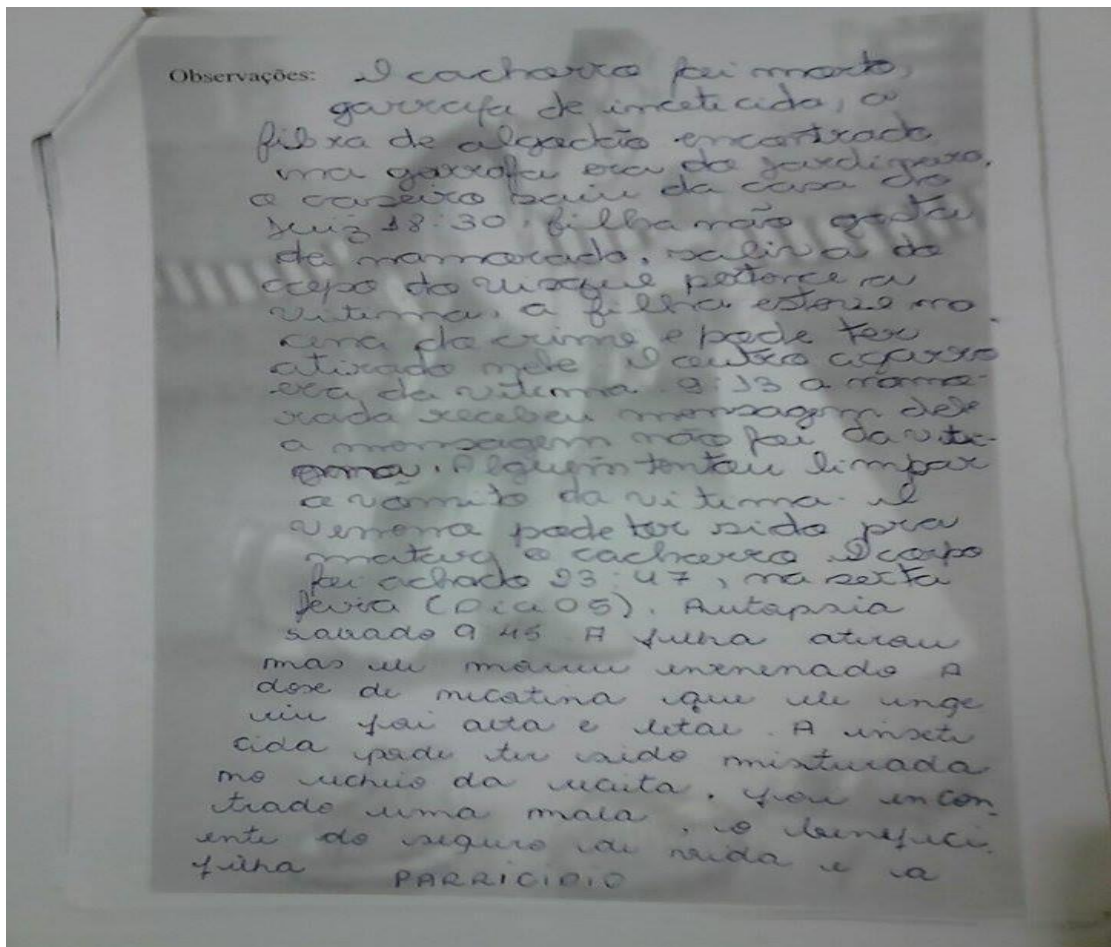 Observações: O cachorro foi morto,
garrafa de inceticida, a
fibra de algodão encontrado
na garrafa era do jardineiro.
o caseiro saiu da casa do
Juiz 18:30. filha não gosta
da namorada. saliva do
copo do uisque pertence a
vitima. a filha esteve no
cena do crime e pode ter
atirado nele O outro cigarro
era da vitima 9:13 a namo-
rada recebeu mensagem dele
a mensagem não foi da viti-
ma. Alguem tentou limpar
o vômito da vitima. O
veneno pode ter sido pra
matar o cachorro O corpo
foi achado 23:47, na sexta
feira (Dia 05). Autopsia
sabado 9 45 A filha atirou
mas ele morreu envenenado A
dose de nicotina que ele inge
riu foi alta e letal. A inseti
cida pode ter sido misturada
no recheio da receita. foi encon-
trado uma mala, o benefici
ente do seguro de vida é a
filha PARRICIDIO